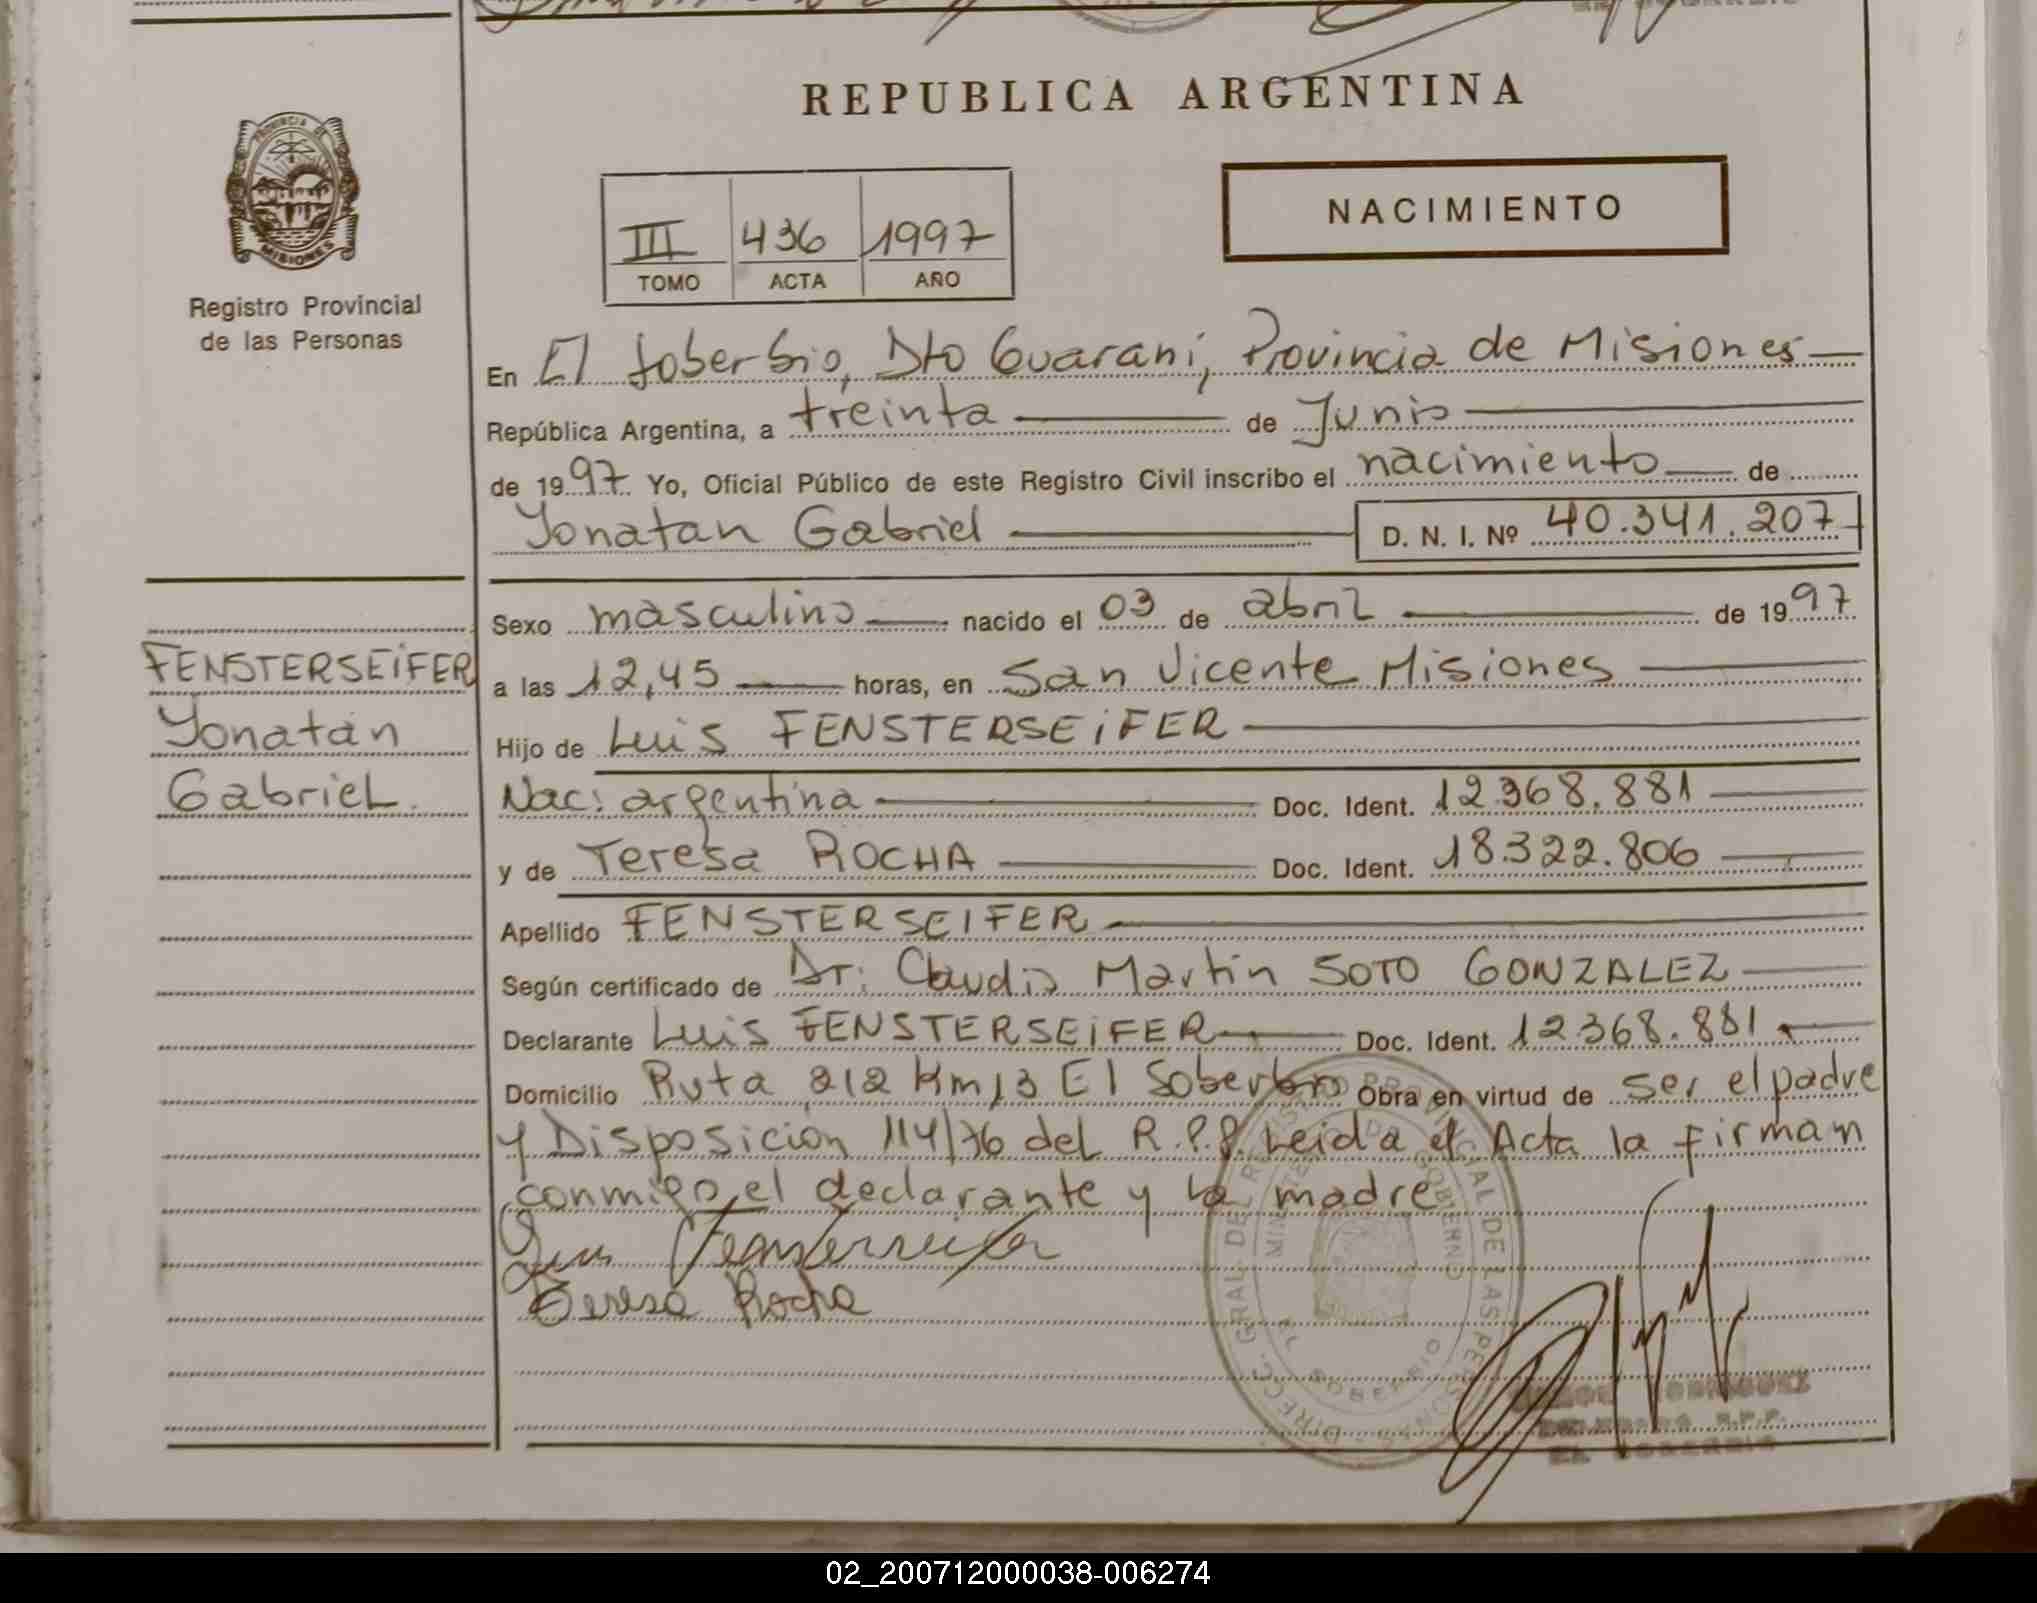 REPUBLICA ARGENTINA
PROVINCIA DE
MISIONES
Registro Provincial
de las Personas
III 436 1997
TOMO ACTA AÑO
NACIMIENTO
En El Soberbio, Dto Guaraní, Provincia de Misiones
República Argentina, a treinta de Junio
de 1997 Yo, Oficial Público de este Registro Civil inscribo el nacimiento de
Yonatan Gabriel D. N. I. Nº 40.341.207
Sexo masculino nacido el 03 de abril de 1997
FENSTERSEIFER
Yonatan
Gabriel.
a las 12,45 horas, en San Vicente Misiones
Hijo de Luis FENSTERSEIFER
Nac: argentina Doc. Ident. 12.368.881
y de Teresa ROCHA Doc. Ident. 18.322.806
Apellido FENSTERSEIFER
Según certificado de Dr: Claudio Martin SOTO GONZALEZ
Declarante Luis FENSTERSEIFER Doc. Ident. 12368.881
Domicilio Ruta 212 Km 13 El Soberbio Obra en virtud de ser el padre
y Disposición 114/76 del R.P.P. Leida el Acta la firman
conmigo el declarante y la madre
Luis Fensterseifer
Teresa Rocha
DIRECC. GRAL. DEL REGISTRO PROVINCIAL DE LAS PERSONAS
MINISTERIO DE GOBIERNO
EL SOBERBIO
R.P.P.
EL SOBERBIO
02_200712000038-006274